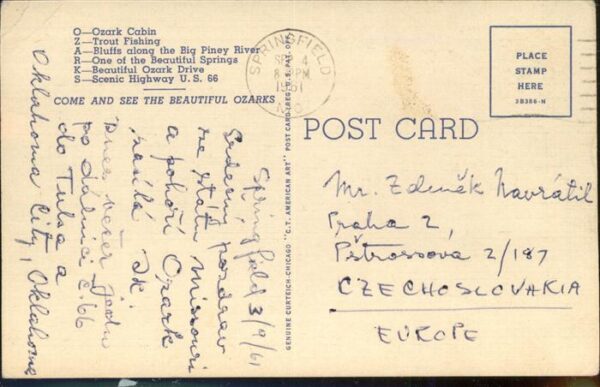 O—Ozark Cabin
Z—Trout Fishing
A—Bluffs along the Big Piney River
R—One of the Beautiful Springs
K—Beautiful Ozark Drive
S—Scenic Highway U. S. 66
COME AND SEE THE BEAUTIFUL OZARKS
SPRINGFIELD
SEP 4
PM
1961
MO.
PLACE
STAMP
HERE
2B386-N
POST CARD
GENUINE CURTEICH-CHICAGO "C.T. AMERICAN ART" POST CARD (REG. U.S. PAT. OFF.)
Springfield 3/9/61
Srdečný pozdrav
ze státu Missouri
a pohoří Ozark
zasílá
Dnes večer jedu
po dálnici č. 66
do Tulsa a
Oklahoma City, Oklahoma
Mr. Zdeněk Navrátil
Praha 2,
Pštrossova 2/187
CZECHOSLOVAKIA
EUROPE